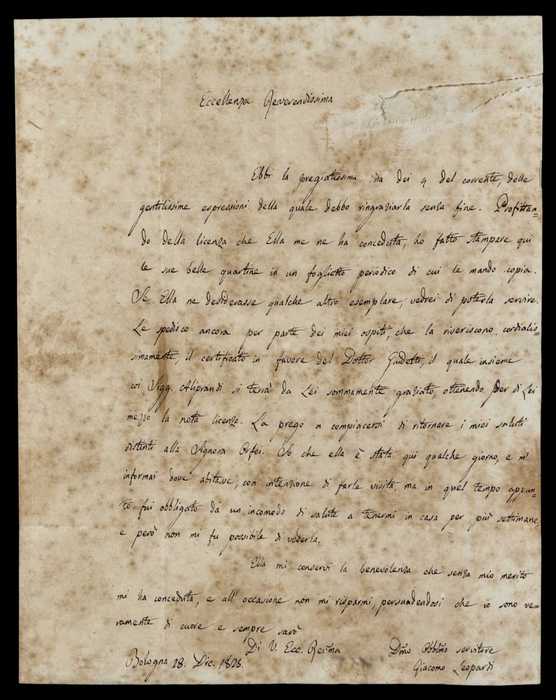 Eccellenza Reverendissima
Ebbi la pregiatissima sua dei 9 del corrente, delle
gentilissime espressioni della quale debbo ringraziarla senza fine. Profittan-
do della licenza che Ella me ne ha conceduta, ho fatto stampare qui
le sue belle quartine in un foglietto periodico di cui le mando copia.
Se Ella ne desiderasse qualche altro esemplare, vedrei di poterla servire.
Le spedisco ancora per parte dei miei ospiti, che la riveriscono cordialis-
simamente, il certificato in favore del Dottor Gudetti, il quale insieme
coi Sigg. Aliprandi si terrà da Lei sommamente graziato, ottenendo per di Lei
mezzo la nota licenza. La prego a compiacersi di ritornare i miei saluti
distinti alla Signora Orfei. So che ella è stata qui qualche giorno, e m'
informai dove abitava, con intenzione di farle visita, ma in quel tempo appun-
to fui obbligato da un incomodo di salute a tenermi in casa per più settimane,
e però non mi fu possibile di vederla.
Ella mi conservi la benevolenza che senza mio merito
mi ha conceduta, e all'occasione non mi risparmi, persuadendosi che io sono ve-
ramente di cuore e sempre sarò
Di V. Ecc. Revma
Bologna 18. Dic. Dmo Obblmo servitore
Giacomo Leopardi